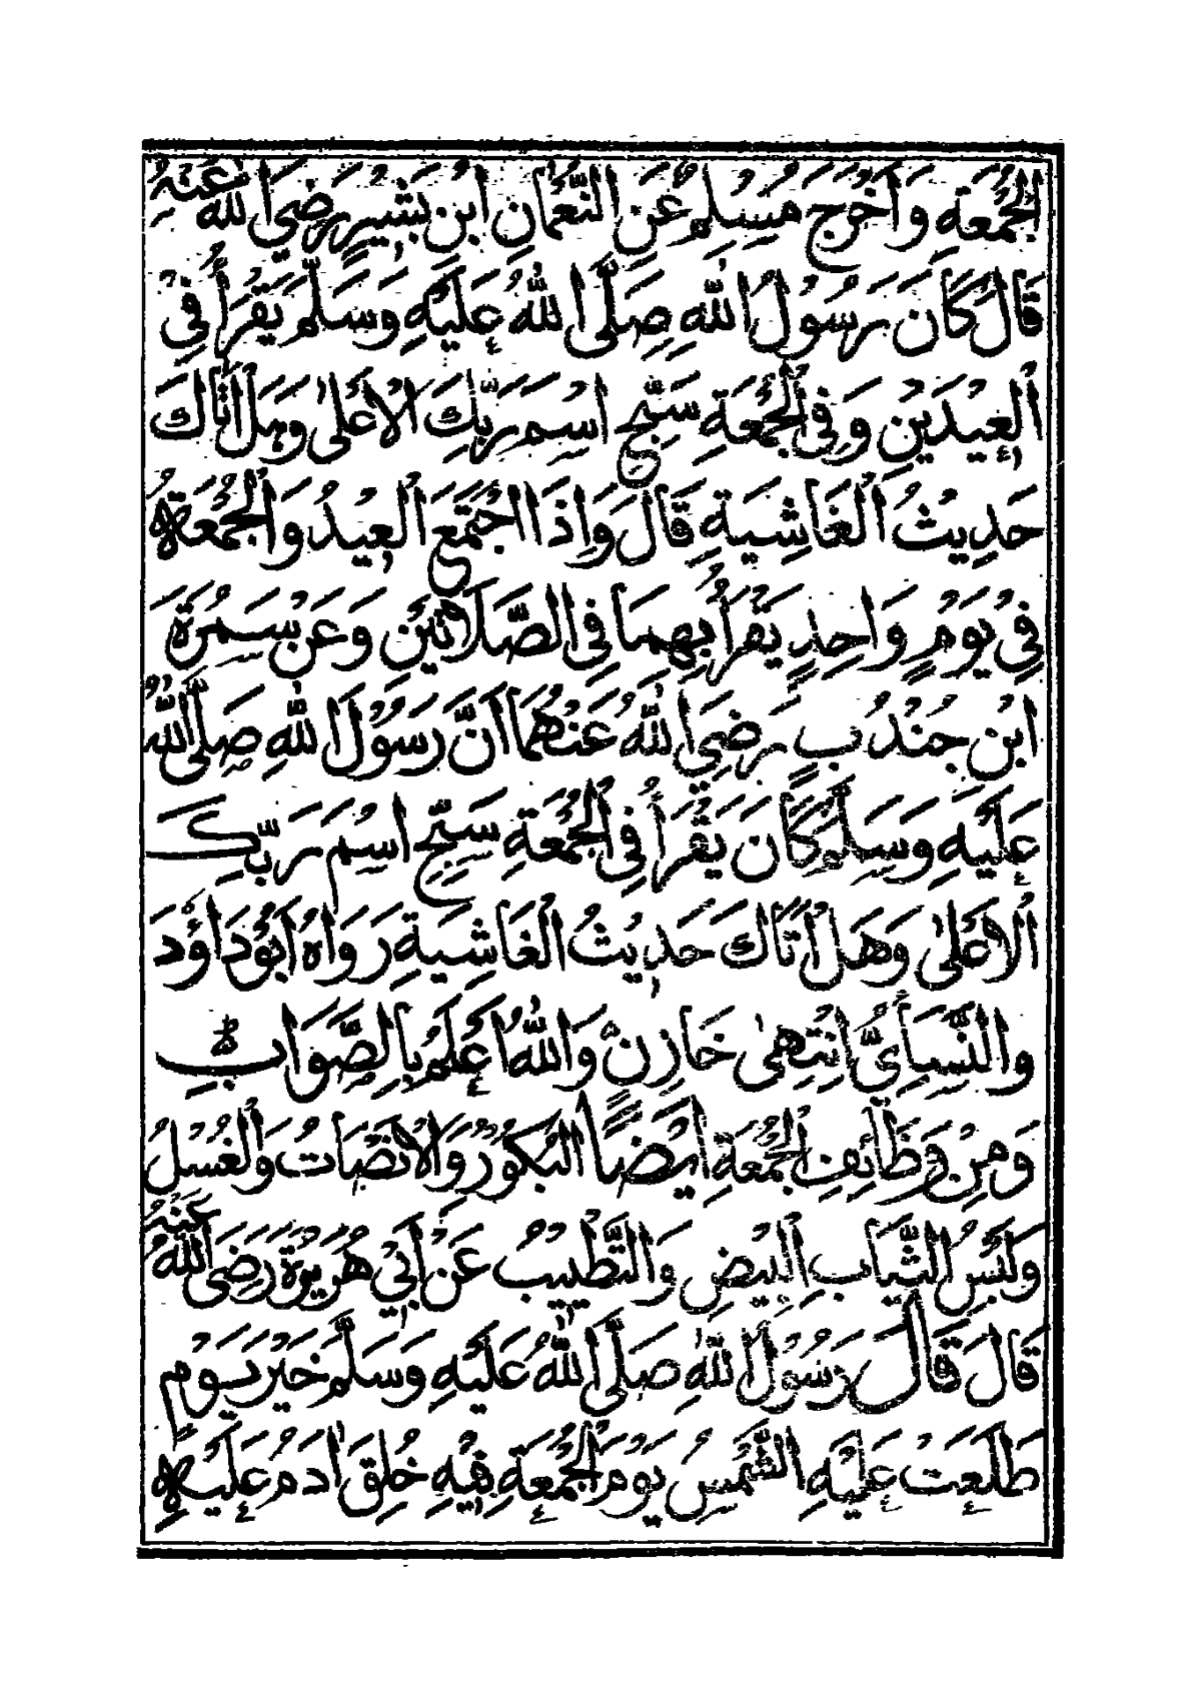 الْجُمُعَةِ وَاَخْرَجَ مُسْلِمٌ عَنِ النُّعْمَانِ ابْنِ بَشِيْرٍ رَضِيَ اللّٰهُ عَنْهُ
قَالَ كَانَ رَسُوْلُ اللّٰهِ صَلَّى اللّٰهُ عَلَيْهِ وَسَلَّمَ يَقْرَأُ فِيْ
الْعِيْدَيْنِ وَفِي الْجُمُعَةِ سَبِّحِ اسْمَ رَبِّكَ الْاَعْلٰى وَهَلْ اَتَاكَ
حَدِيْثُ الْغَاشِيَةِ قَالَ وَاِذَا اجْتَمَعَ الْعِيْدُ وَالْجُمُعَةُ
فِيْ يَوْمٍ وَاحِدٍ يَقْرَأُ بِهِمَا فِي الصَّلَاتَيْنِ وَعَنْ سَمُرَةَ
ابْنِ جُنْدُبٍ رَضِيَ اللّٰهُ عَنْهُمَا اَنَّ رَسُوْلَ اللّٰهِ صَلَّى اللّٰهُ
عَلَيْهِ وَسَلَّمَ كَانَ يَقْرَأُ فِي الْجُمُعَةِ سَبِّحِ اسْمَ رَبِّكَ
الْاَعْلٰى وَهَلْ اَتَاكَ حَدِيْثُ الْغَاشِيَةِ رَوَاهُ اَبُوْ دَاوٗدَ
وَالنَّسَائِيُّ اِنْتَهٰى خَازِنٌ وَاللّٰهُ اَعْلَمُ بِالصَّوَابِ
وَمِنْ وَظَائِفِ الْجُمُعَةِ اَيْضًا الْبُكُوْرُ وَالْاِنْصَاتُ وَالْغُسْلُ
وَلُبْسُ الثِّيَابِ الْبِيْضِ وَالتَّطْيِيْبُ عَنْ اَبِيْ هُرَيْرَةَ رَضِيَ اللّٰهُ عَنْهُ
قَالَ قَالَ رَسُوْلُ اللّٰهِ صَلَّى اللّٰهُ عَلَيْهِ وَسَلَّمَ خَيْرُ يَوْمٍ
طَلَعَتْ عَلَيْهِ الشَّمْسُ يَوْمُ الْجُمُعَةِ فِيْهِ خُلِقَ اٰدَمُ عَلَيْهِ